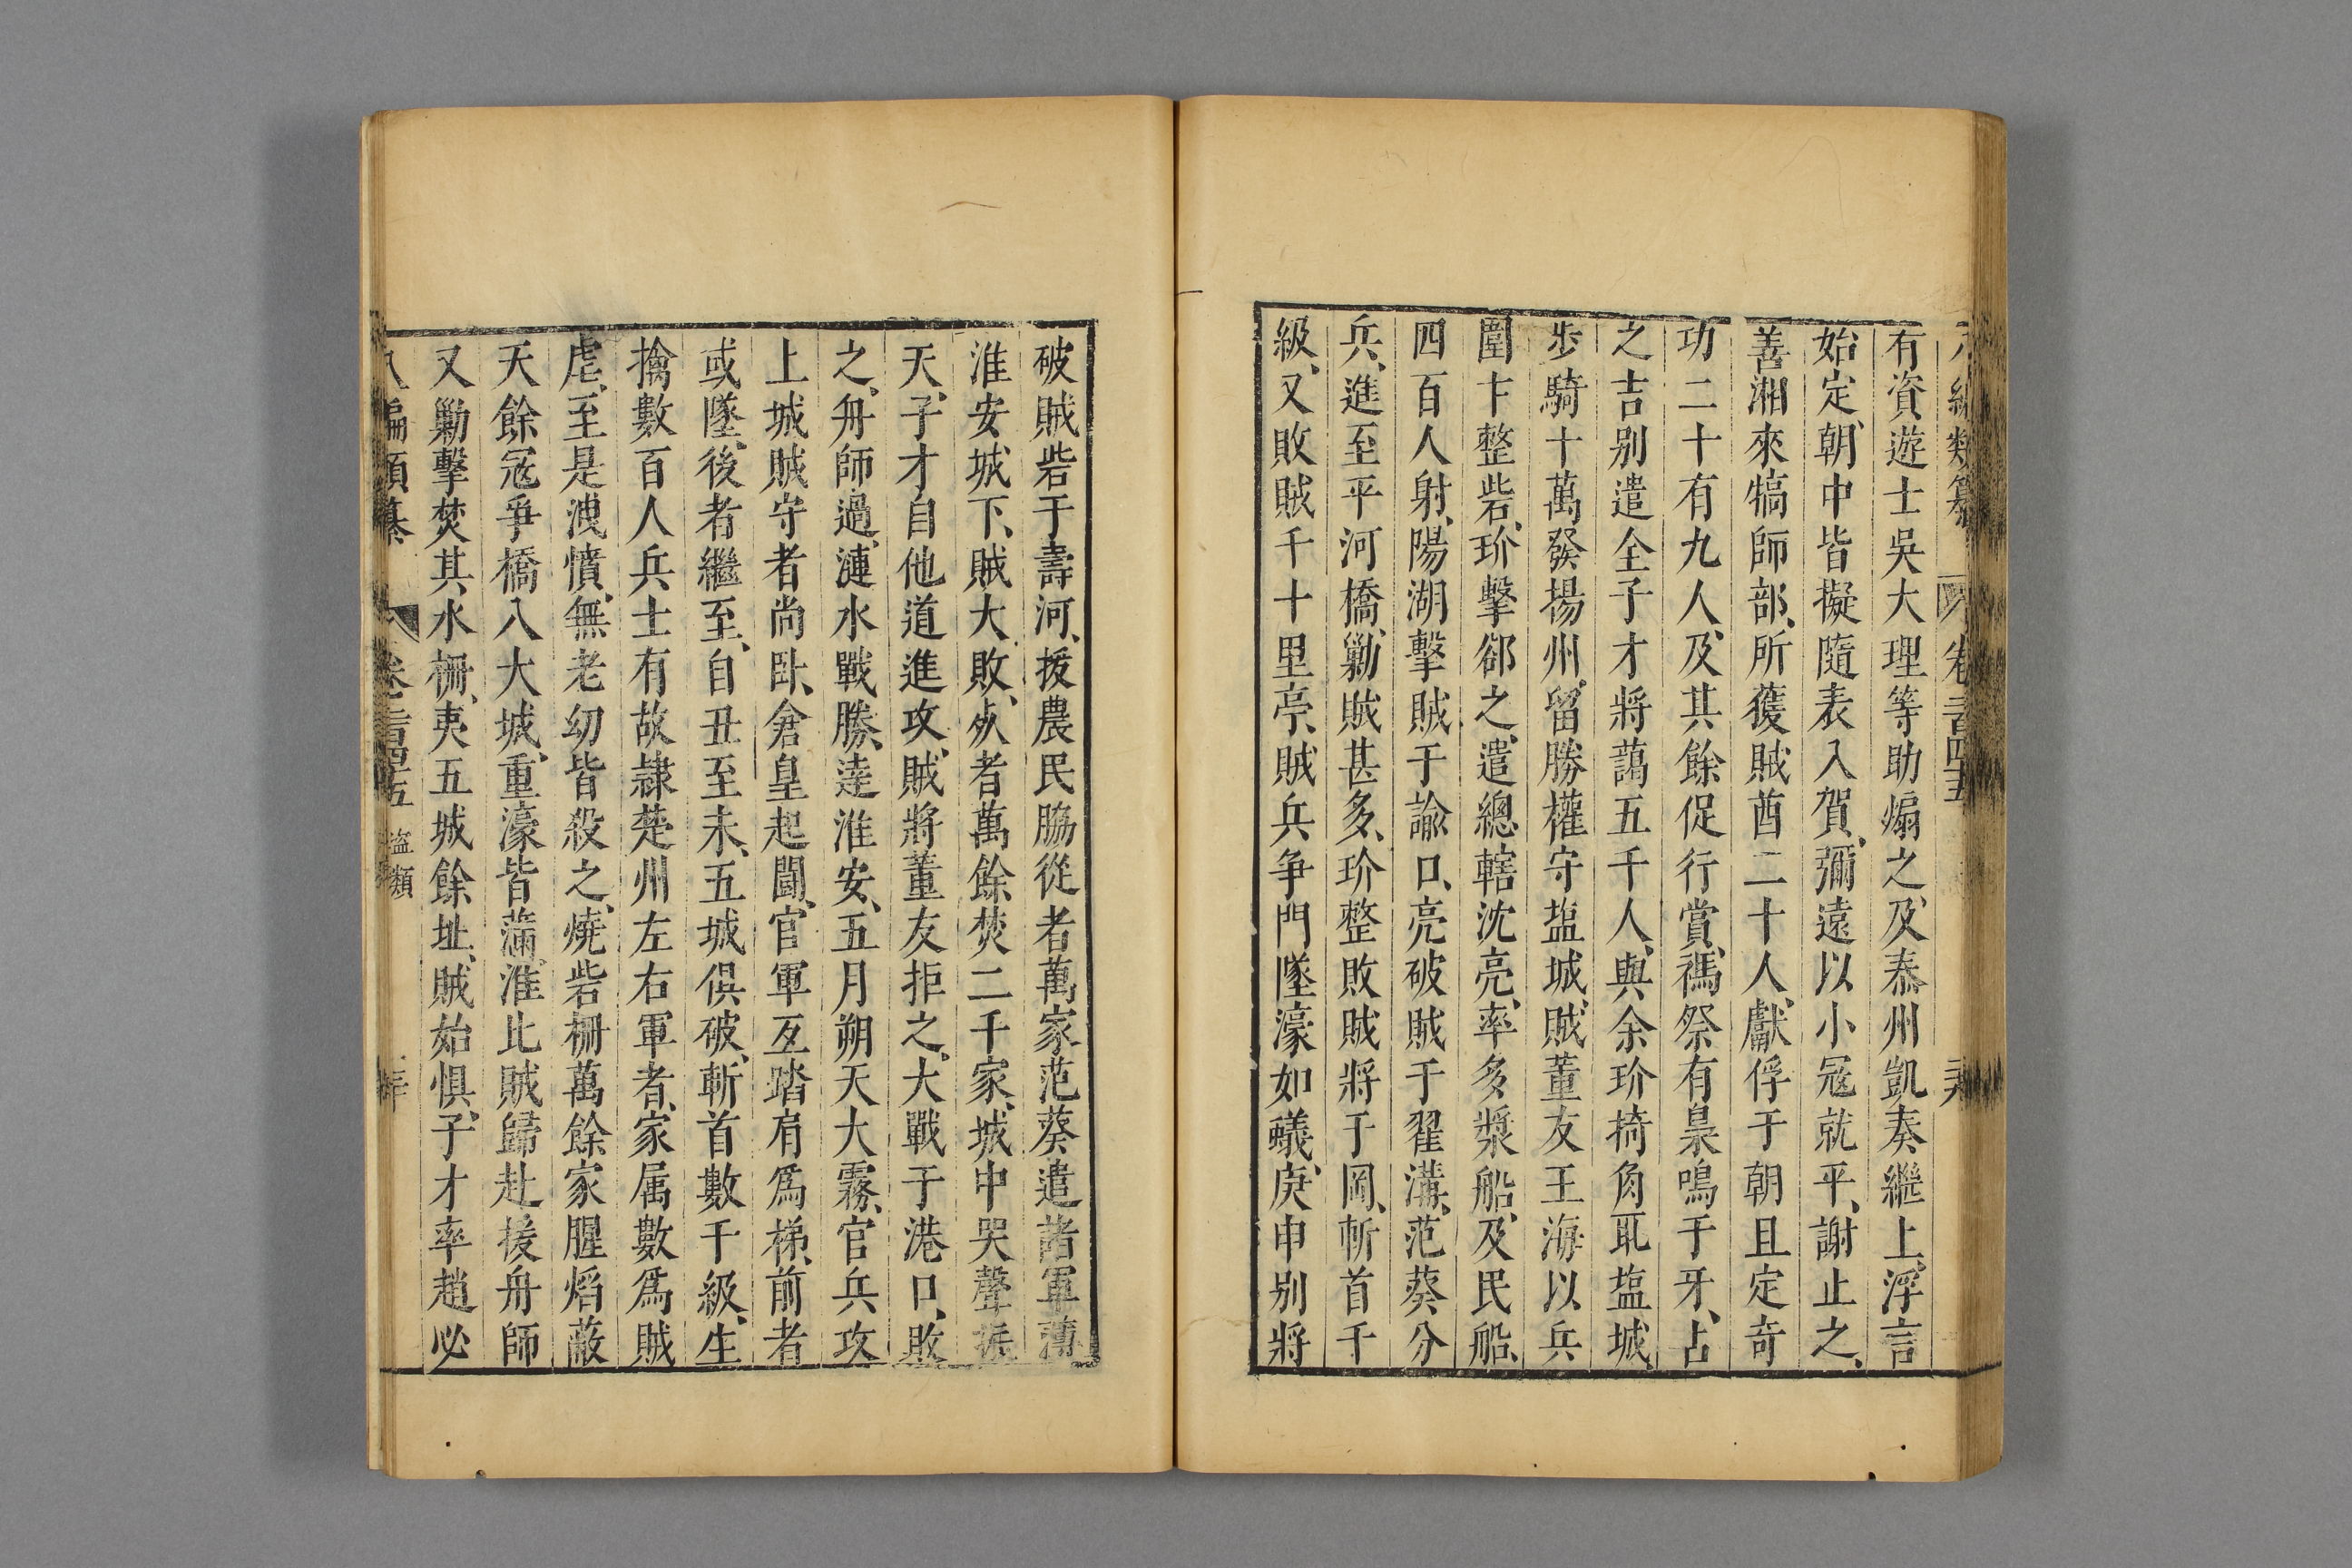 編類纂 卷二百四五
有資遊士吳大理等助煽之及泰州凱奏繼上浮言
始定朝中皆擬隨表入賀彌遠以小冦就平謝止之
善湘來犒師部所獲賊酋二十人獻俘于朝且定奇
功二十有九人及其餘促行賞禡祭有梟鳴于牙占
之吉别遣全子才將藹五千人與余玠掎角取塩城
步騎十萬發揚州留勝權守塩城賊董友王海以兵
圍卞整砦玠擊郤之遣總轄沈亮率多槳船及民船
四百人射陽湖擊賊于諭口亮破賊于翟溝范葵分
兵進至平河橋勦賊甚多玠整敗賊將于岡斬首千
級又敗賊千十里亭賊兵争門墜濠如蟻庚申别將
破賊砦于壽河援農民脇從者萬家范葵遣諸軍薄
淮安城下賊大敗死者萬餘焚二千家城中哭聲振
天子才自他道進攻賊將董友拒之大戰于港口敗
之舟師過漣水戰勝逹淮安五月朔天大霧官兵攻
上城賊守者尚卧倉皇起鬪官軍互踏肩爲梯前者
或墜後者繼至自丑至未五城俱破斬首數千級生
擒數百人兵士有故隷楚州左右軍者家属數爲賊
虐至是洩憤無老幼皆殺之燒砦柵萬餘家腥熖蔽
天餘冦爭橋入大城重濠皆滿淮比賊歸赴援舟師
又勦擊焚其水柵夷五城餘址賊始惧子才率趙必
八編類纂 卷二百四五 盜類 三十